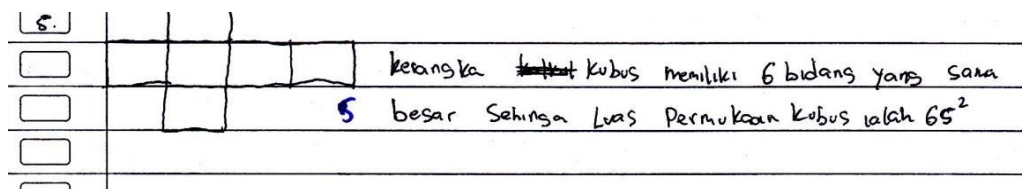 5.
kerangka kubus memiliki 6 bidang yang sama
5 besar Sehingga Luas Permukaan kubus ialah 6s²